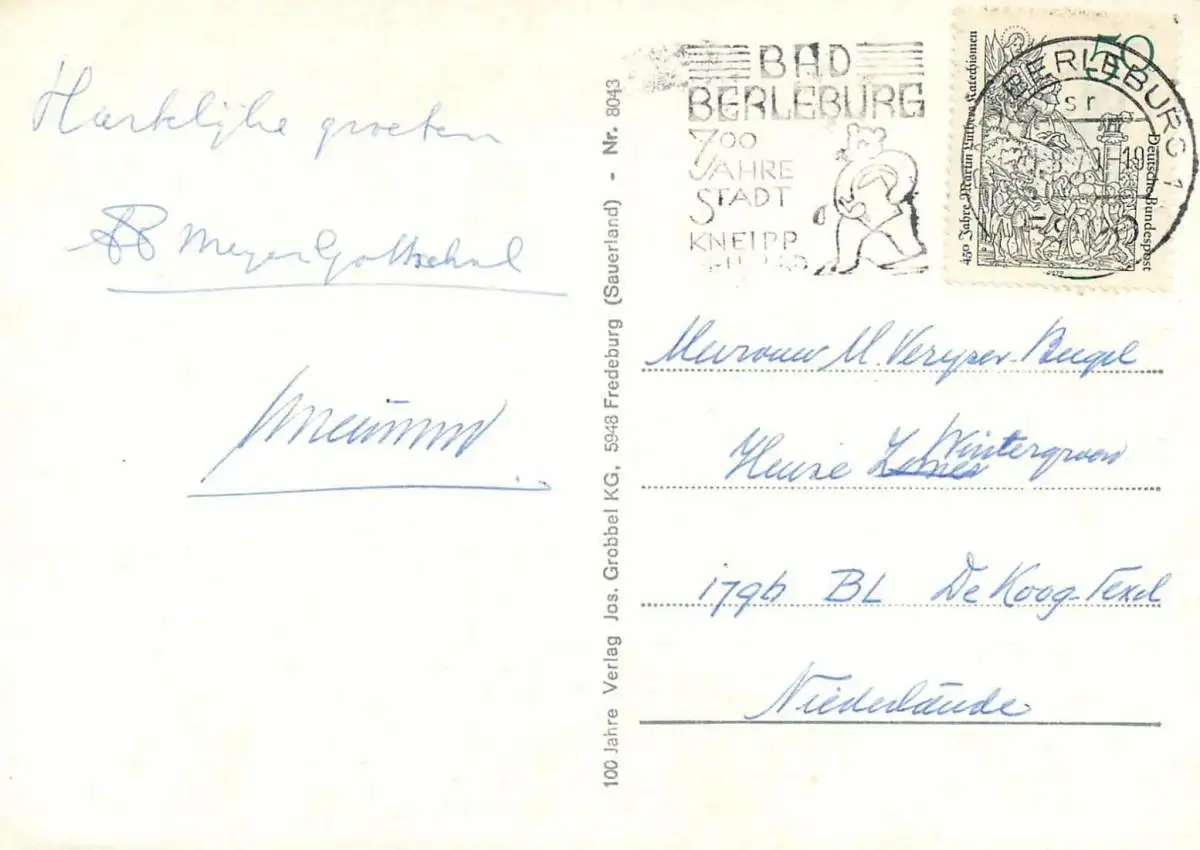 Hartelijke groeten
Meyer Gottschal
100 Jahre Verlag Jos. Grobbel KG, 5948 Fredeburg (Sauerland) - Nr. 8043
BAD
BERLEBURG
700
JAHRE
STADT
KNEIPP
BERLEBURG 1
sr
-19
50
450 Jahre Martin Luthers Katechismen
Deutsche Bundespost
Mevrouw M. Veryser-Beugel
Huize Wintergroen
1796 BL De Koog-Texel
Niederlände